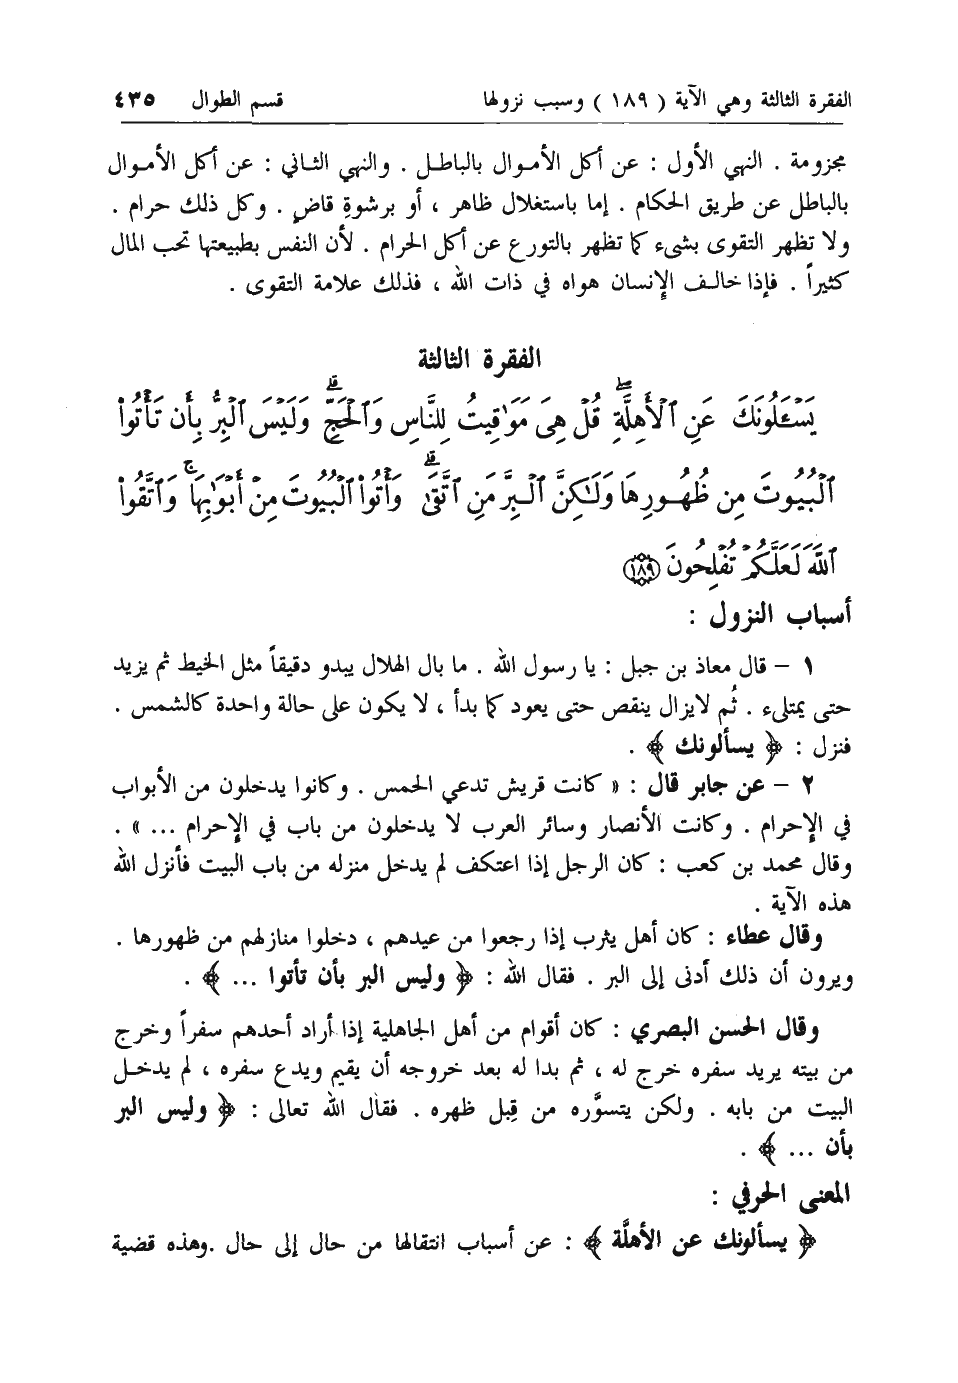 الفقرة الثالثة وهي الآية ( ١٨٩ ) وسبب نزولها قسم الطوال ٤٣٥
مجزومة . النهي الأول : عن أكل الأموال بالباطل . والنهي الثاني : عن أكل الأموال
بالباطل عن طريق الحكام . إما باستغلال ظاهر ، أو برشوةِ قاضٍ . وكل ذلك حرام .
ولا تظهر التقوى بشيء كما تظهر بالتورع عن أكل الحرام . لأن النفس بطبيعتها تحب المال
كثيراً . فإذا خالف الإنسان هواه في ذات الله ، فذلك علامة التقوى .
الفقرة الثالثة
يَسْـَٔلُونَكَ عَنِ ٱلْأَهِلَّةِۖ قُلْ هِىَ مَوَٰقِيتُ لِلنَّاسِ وَٱلْحَجِّۗ وَلَيْسَ ٱلْبِرُّ بِأَن تَأْتُوا۟
ٱلْبُيُوتَ مِن ظُهُورِهَا وَلَـٰكِنَّ ٱلْبِرَّ مَنِ ٱتَّقَىٰۗ وَأْتُوا۟ ٱلْبُيُوتَ مِنْ أَبْوَٰبِهَاۚ وَٱتَّقُوا۟
ٱللَّهَ لَعَلَّكُمْ تُفْلِحُونَ ١٨٩
أسباب النزول :
١ – قال معاذ بن جبل : يا رسول الله . ما بال الهلال يبدو دقيقاً مثل الخيط ثم يزيد
حتى يمتلىء . ثُم لايزال ينقص حتى يعود كما بدأ ، لا يكون على حالة واحدة كالشمس .
فنزل : ﴿ يسألونك ﴾ .
٢ – عن جابر قال : « كانت قريش تدعي الحمس . وكانوا يدخلون من الأبواب
في الإحرام . وكانت الأنصار وسائر العرب لا يدخلون من باب في الإحرام ... » .
وقال محمد بن كعب : كان الرجل إذا اعتكف لم يدخل منزله من باب البيت فأنزل الله
هذه الآية .
وقال عطاء : كان أهل يثرب إذا رجعوا من عيدهم ، دخلوا منازلهم من ظهورها .
ويرون أن ذلك أدنى إلى البر . فقال الله : ﴿ وليس البر بأن تأتوا ... ﴾ .
وقال الحسن البصري : كان أقوام من أهل الجاهلية إذا أراد أحدهم سفراً وخرج
من بيته يريد سفره خرج له ، ثم بدا له بعد خروجه أن يقيم ويدع سفره ، لم يدخل
البيت من بابه . ولكن يتسوَّره من قِبل ظهره . فقال الله تعالى : ﴿ وليس البر
بأن ... ﴾ .
المعنى الحرفي :
﴿ يسألونك عن الأهلَّة ﴾ : عن أسباب انتقالها من حال إلى حال .وهذه قضية